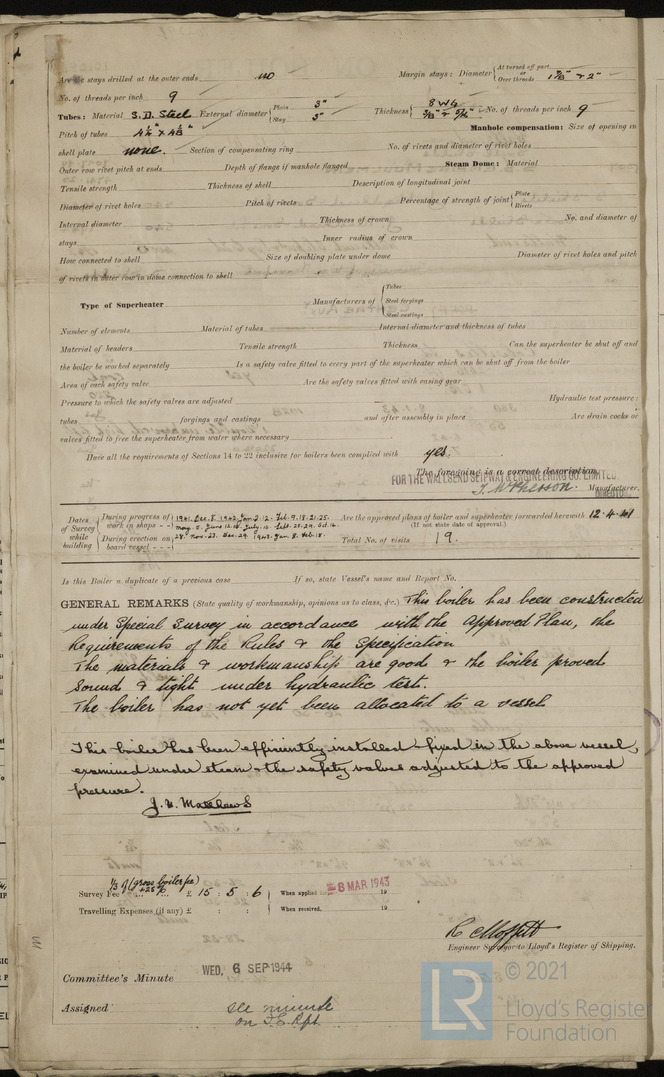 Are the stays drilled at the outer ends no Margin stays: Diameter { At turned off part or Over threads 2"
No. of threads per inch 9
Tubes: Material S.D. Steel External diameter { Plain 3" Stay 3" Thickness { 8 WG No. of threads per inch 9
Pitch of tubes Manhole compensation: Size of opening in
shell plate none. Section of compensating ring No. of rivets and diameter of rivet holes
Outer row rivet pitch at ends Depth of flange if manhole flanged Steam Dome: Material
Tensile strength Thickness of shell Description of longitudinal joint
Diameter of rivet holes Pitch of rivets Percentage of strength of joint { Plate Rivets
Internal diameter Thickness of crown No. and diameter of
stays Inner radius of crown
How connected to shell Size of doubling plate under dome Diameter of rivet holes and pitch
of rivets in outer row in dome connection to shell
Type of Superheater Manufacturers of { Tubes Steel forgings Steel castings
Number of elements Material of tubes Internal diameter and thickness of tubes
Material of headers Tensile strength Thickness Can the superheater be shut off and
the boiler be worked separately Is a safety valve fitted to every part of the superheater which can be shut off from the boiler
Area of each safety valve Are the safety valves fitted with easing gear
Pressure to which the safety valves are adjusted Hydraulic test pressure:
tubes forgings and castings and after assembly in place Are drain cocks or
valves fitted to free the superheater from water where necessary
Have all the requirements of Sections 14 to 22 inclusive for boilers been complied with yes.
The foregoing is a correct description,
FOR THE WALLSEND SLIPWAY & ENGINEERING CO. LIMITED
J. McPherson. Manufacturer.
Dates of Survey while building { During progress of work in shops - - 1941. Dec. 8. 1942. Jan. 2. 12. Feb. 9. 18. 21. 25. Are the approved plans of boiler and superheater forwarded herewith 12.4.41
(If not state date of approval.)
During erection on board vessel - - - Nov. 23. Dec. 29. 1943. Jan. 8. Feb. 18. Total No. of visits 19.
Is this Boiler a duplicate of a previous case If so, state Vessel's name and Report No.
GENERAL REMARKS (State quality of workmanship, opinions as to class, &c.) This boiler has been constructed
under Special Survey in accordance with the Approved Plan, the
Requirements of the Rules & the Specification
The materials & workmanship are good & the boiler proved
Sound & tight under hydraulic test.
The boiler has not yet been allocated to a vessel
This boiler has been efficiently installed & fixed in the above vessel,
examined under steam & the safety valves adjusted to the approved
pressure.
J. H. Mathews
1/3 of (gross boiler fee)
+25%
Survey Fee ... £ 15 : 5 : 6 When applied for 8 MAR 1943 19
Travelling Expenses (if any) £ : : When received, 19
R. C. Moffett
Engineer Surveyor to Lloyd's Register of Shipping.
Committee's Minute WED. 6 SEP 1944
Assigned See minute
on F.E. Rpt
LR © 2021
Lloyd's Register
Foundation